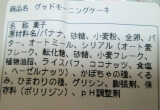 商品名 グッドモーニングケーキ
名 称 菓子
原材料 バナナ、砂糖、小麦粉、全卵、バ
ター、オートミール、シリアル(オート麦、
、転化糖、砂糖、小麦粉、
植物油脂、ライスパフ、ココナッツ、食塩
ーゼルナッツ)、かぼちゃの種、くる
み、ひまわりの種、グリシン、膨張剤、保存
料(ポリリジン)、pH調整剤